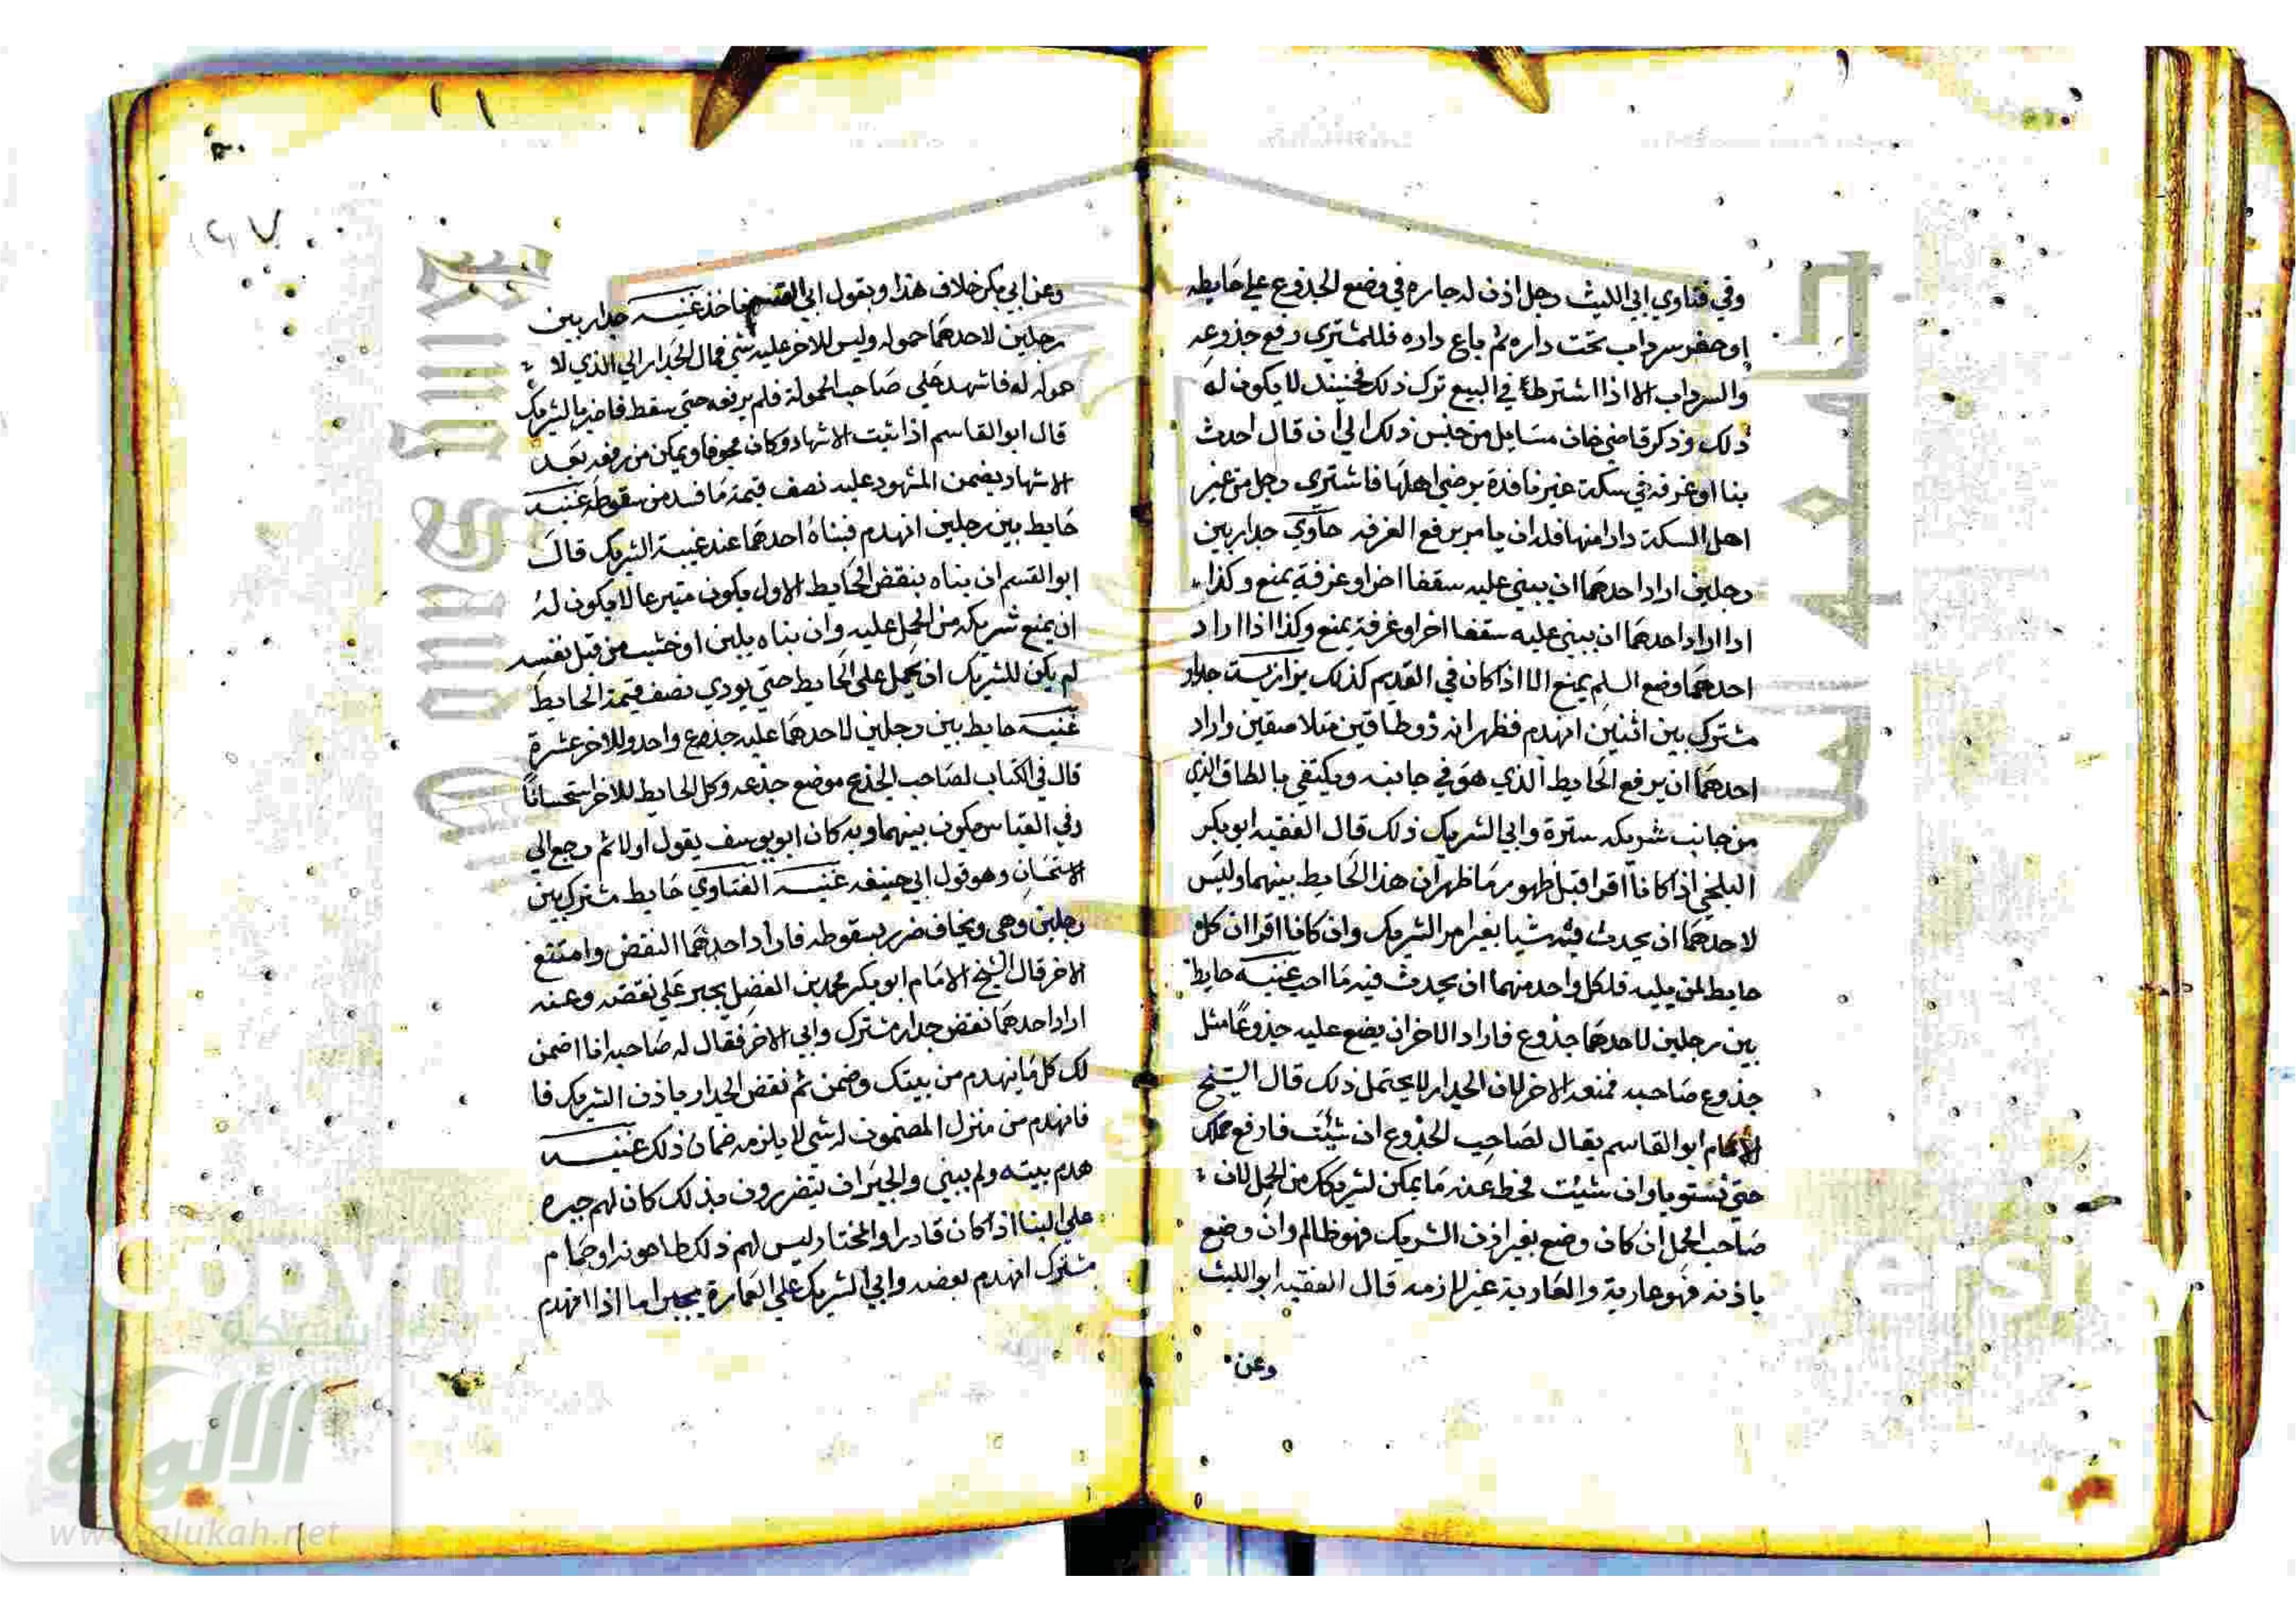 وفي فتاوي ابي الليث رجل اذن له جاره في وضع الجذوع علي حايطه
او حفر سرداب تحت داره ثم باع داره فللمشتري رفع جذوعه
والسرداب الا اذا اشترط في البيع ترك ذلك فحينيذ لا يكون له
ذلك وذكر قاضي خان مسايل من جنس ذلك الي ان قال احدث
بنا او غرفة في سكة غير نافذة برضي اهلها فاشتري رجل من غير
اهل السكة دارا منها فله ان يامر برفع الغرفه حاوي جدار بين
رجلين اراد احدهما ان يبني عليه سقفا اخر او غرفة يمنع وكذا
اذا اراد احدهما ان يبني عليه سقفا اخر او غرفة يمنع وكذا اذا اراد
احدهما وضع السلم يمنع الا اذا كان في القديم كذلك بزازية جدار
مشترك بين اثنين انهدم فظهر انه ذو طاقين متلاصقين واراد
احدهما ان يرفع الحايط الذي هو في جانبه ويكتفي بالطاق الذي
من جانب شريكه سترة وابي الشريك ذلك قال الفقيه ابو بكر
البلخي اذا كانا اقرا قبل ظهور ما ظهر ان هذا الحايط بينهما وليس
لاحدهما ان يحدث فيه شيا بغير امر الشريك وان كانا اقرا ان كل
حايط لمن يليه فلكل واحد منهما ان يحدث فيه ما احب غنيه حايط
بين رجلين لاحدهما جذوع فاراد الاخر ان يضع عليه جذوعا مثل
جذوع صاحبه فمنعه الاخر لان الجدار لا يحتمل ذلك قال الشيخ
الامام ابو القاسم يقال لصاحب الجذوع ان شيت فارفع حملك
حتي تستويا وان شيت فحط عنه ما يمكن لشريكك من الحمل لان
صاحب الحمل ان كان وضع بغير اذن الشريك فهو ظالم وان وضع
باذنه فهو عارية والعارية غير لازمه قال الفقيه ابو الليث
وعن
وعن ابي بكر خلاف هذا وبقول ابي القسم ناخذ غنيه جدار بين
رجلين لاحدهما حموله وليس للاخر عليه شي فمال الجدار الي الذي لا
حموله له فاشهد علي صاحب الحمولة فلم يرفعه حتي سقط فاضر بالشريك
قال ابو القاسم اذا ثبت الاشهاد وكان مخوفا ويمكن من رفعه بعد
الاشهاد يضمن المشهود عليه نصف قيمة ما فسد من سقوطه غنيه
حايط بين رجلين انهدم فبناه احدهما عند غيبة الشريك قال
ابو القسم ان بناه بنقض الحايط الاول يكون متبرعا لا يكون له
ان يمنع شريكه من الحمل عليه وان بناه بلبن او خشب من قبل نفسه
لم يكن للشريك ان يحمل علي الحايط حتي يودي نصف قيمة الحايط
غنيه حايط بين رجلين لاحدهما عليه جذع واحد وللاخر عشرة
قال في الكتاب لصاحب الجذع موضع جذعه وكل الحايط للاخر استحسانا
وفي القياس يكون بينهما وبه كان ابو يوسف يقول اولا ثم رجع الي
الاستحسان وهو قول ابي حنيفه غنيه الفتاوي حايط مشترك بين
رجلين وهي ويخاف ضرر سقوطه فاراد احدهما النقض وامتنع
الاخر قال الشيخ الامام ابو بكر محمد بن الفضل يجبر علي نقضه وعنه
اراد احدهما نقض جدار مشترك وابي الاخر فقال له صاحبه انا اضمن
لك كل ما ينهدم من بيتك وضمن ثم نقض الجدار باذن الشريك فا
فانهدم من منزل المضمون له شي لا يلزمه ضمان ذلك غنيه
هدم بيته ولم يبني والجيران يتضررون بذلك كان لهم جبره
علي البنا اذا كان قادرا والمختار ليس لهم ذلك طاحونه او حمام
مشترك انهدم بعضه وابي الشريك علي العمارة يجبر اما اذا انهدم
٢٧
Copyright
versity
شبكة
الألوكة
www.alukah.net